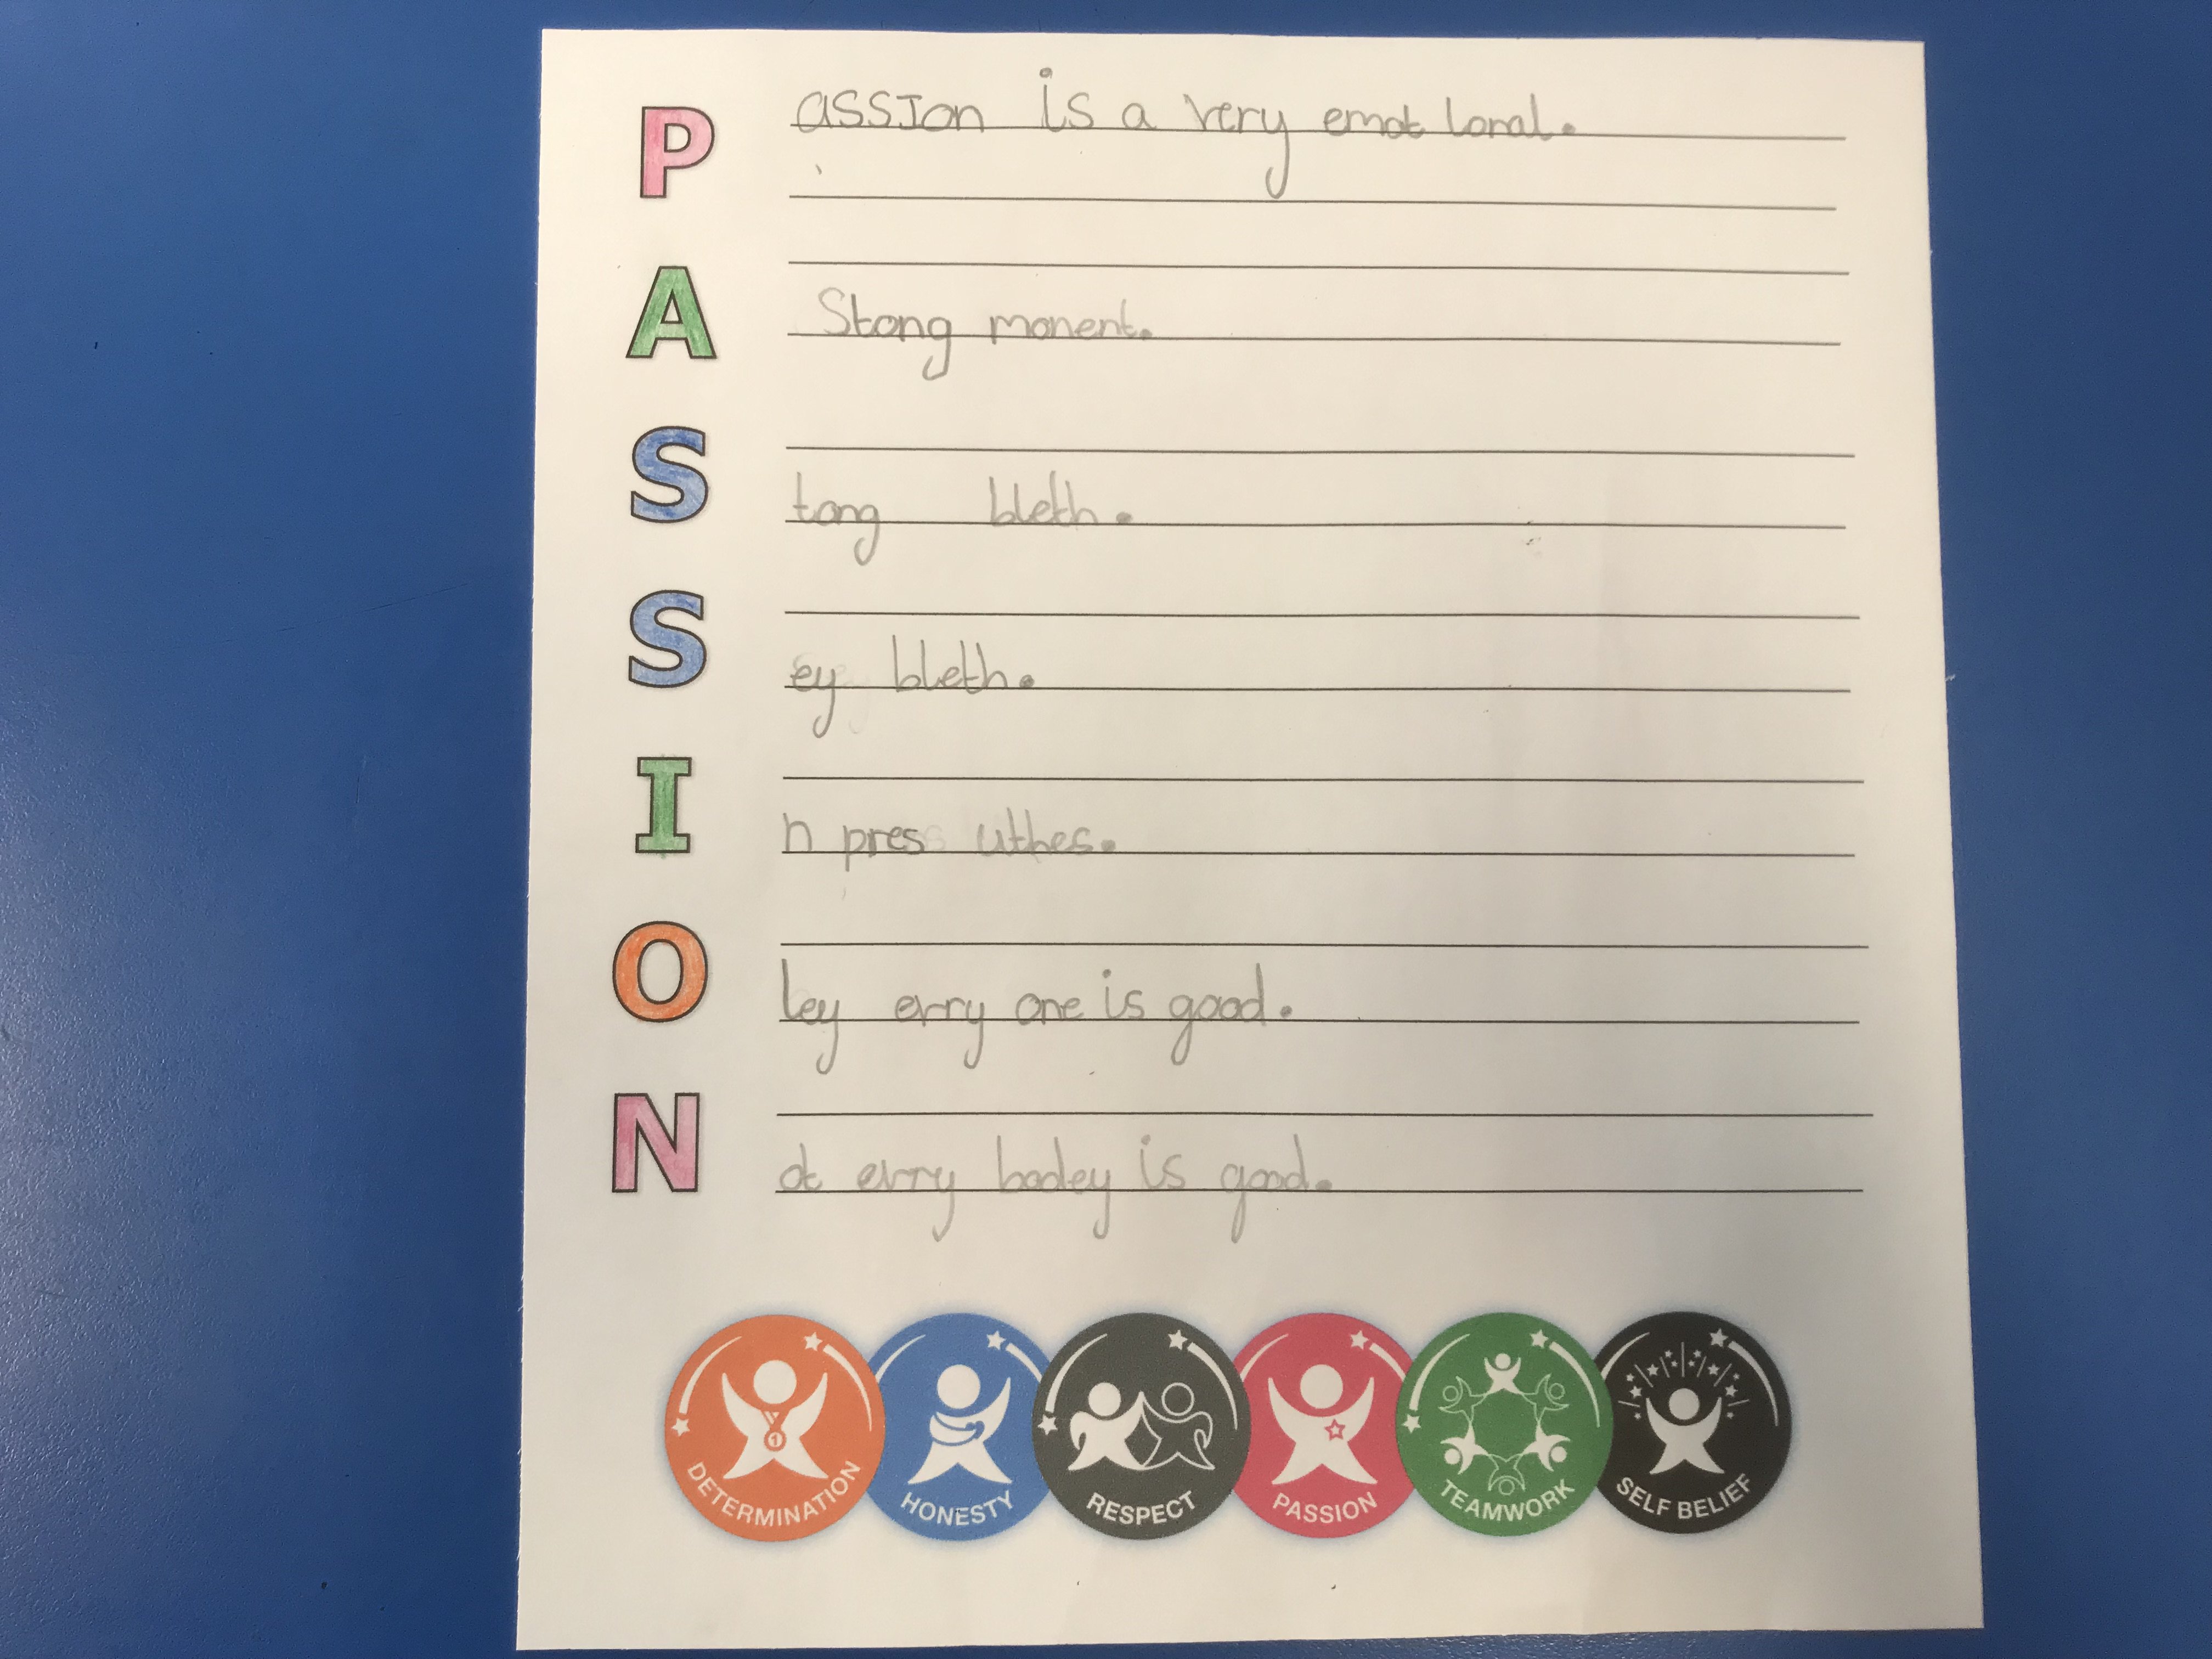 P assIon is a very emot ional.
A Stong monent.
S tong bleth.
S ey bleth.
I n press uthes.
O ley evry one is good.
N ot evry bodey is good.
DETERMINATION HONESTY RESPECT PASSION TEAMWORK SELF BELIEF